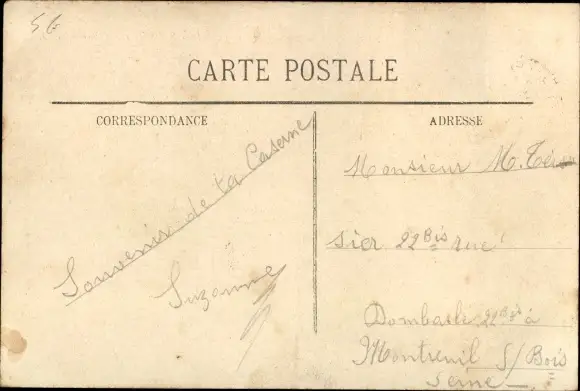 56
CARTE POSTALE
CORRESPONDANCE
Souvenir de ta Caserne
Suzanne
ADRESSE
Monsieur M.
sier 22 Bis rue
Dombasle 22 Bis à
Montreuil s/ Bois
Seine